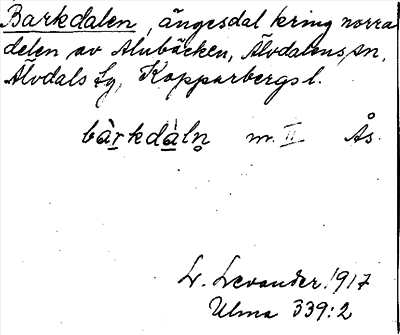 Barkdalen, ängesdal kring norra
delen av Alubäcken, Älvdalens sn,
Älvdals tg, Kopparbergs l.
bàrkdàln̥ m. II Ås.
L. Levander 1917
Ulma 339:2